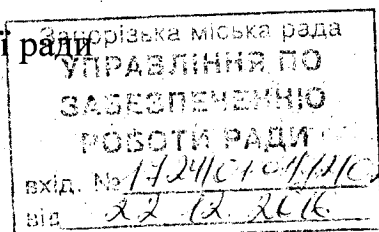 ї ради
Запорізька міська рада
УПРАВЛІННЯ ПО
ЗАБЕЗПЕЧЕННЮ
РОБОТИ РАДИ
вхід. №
від 22.12.2016